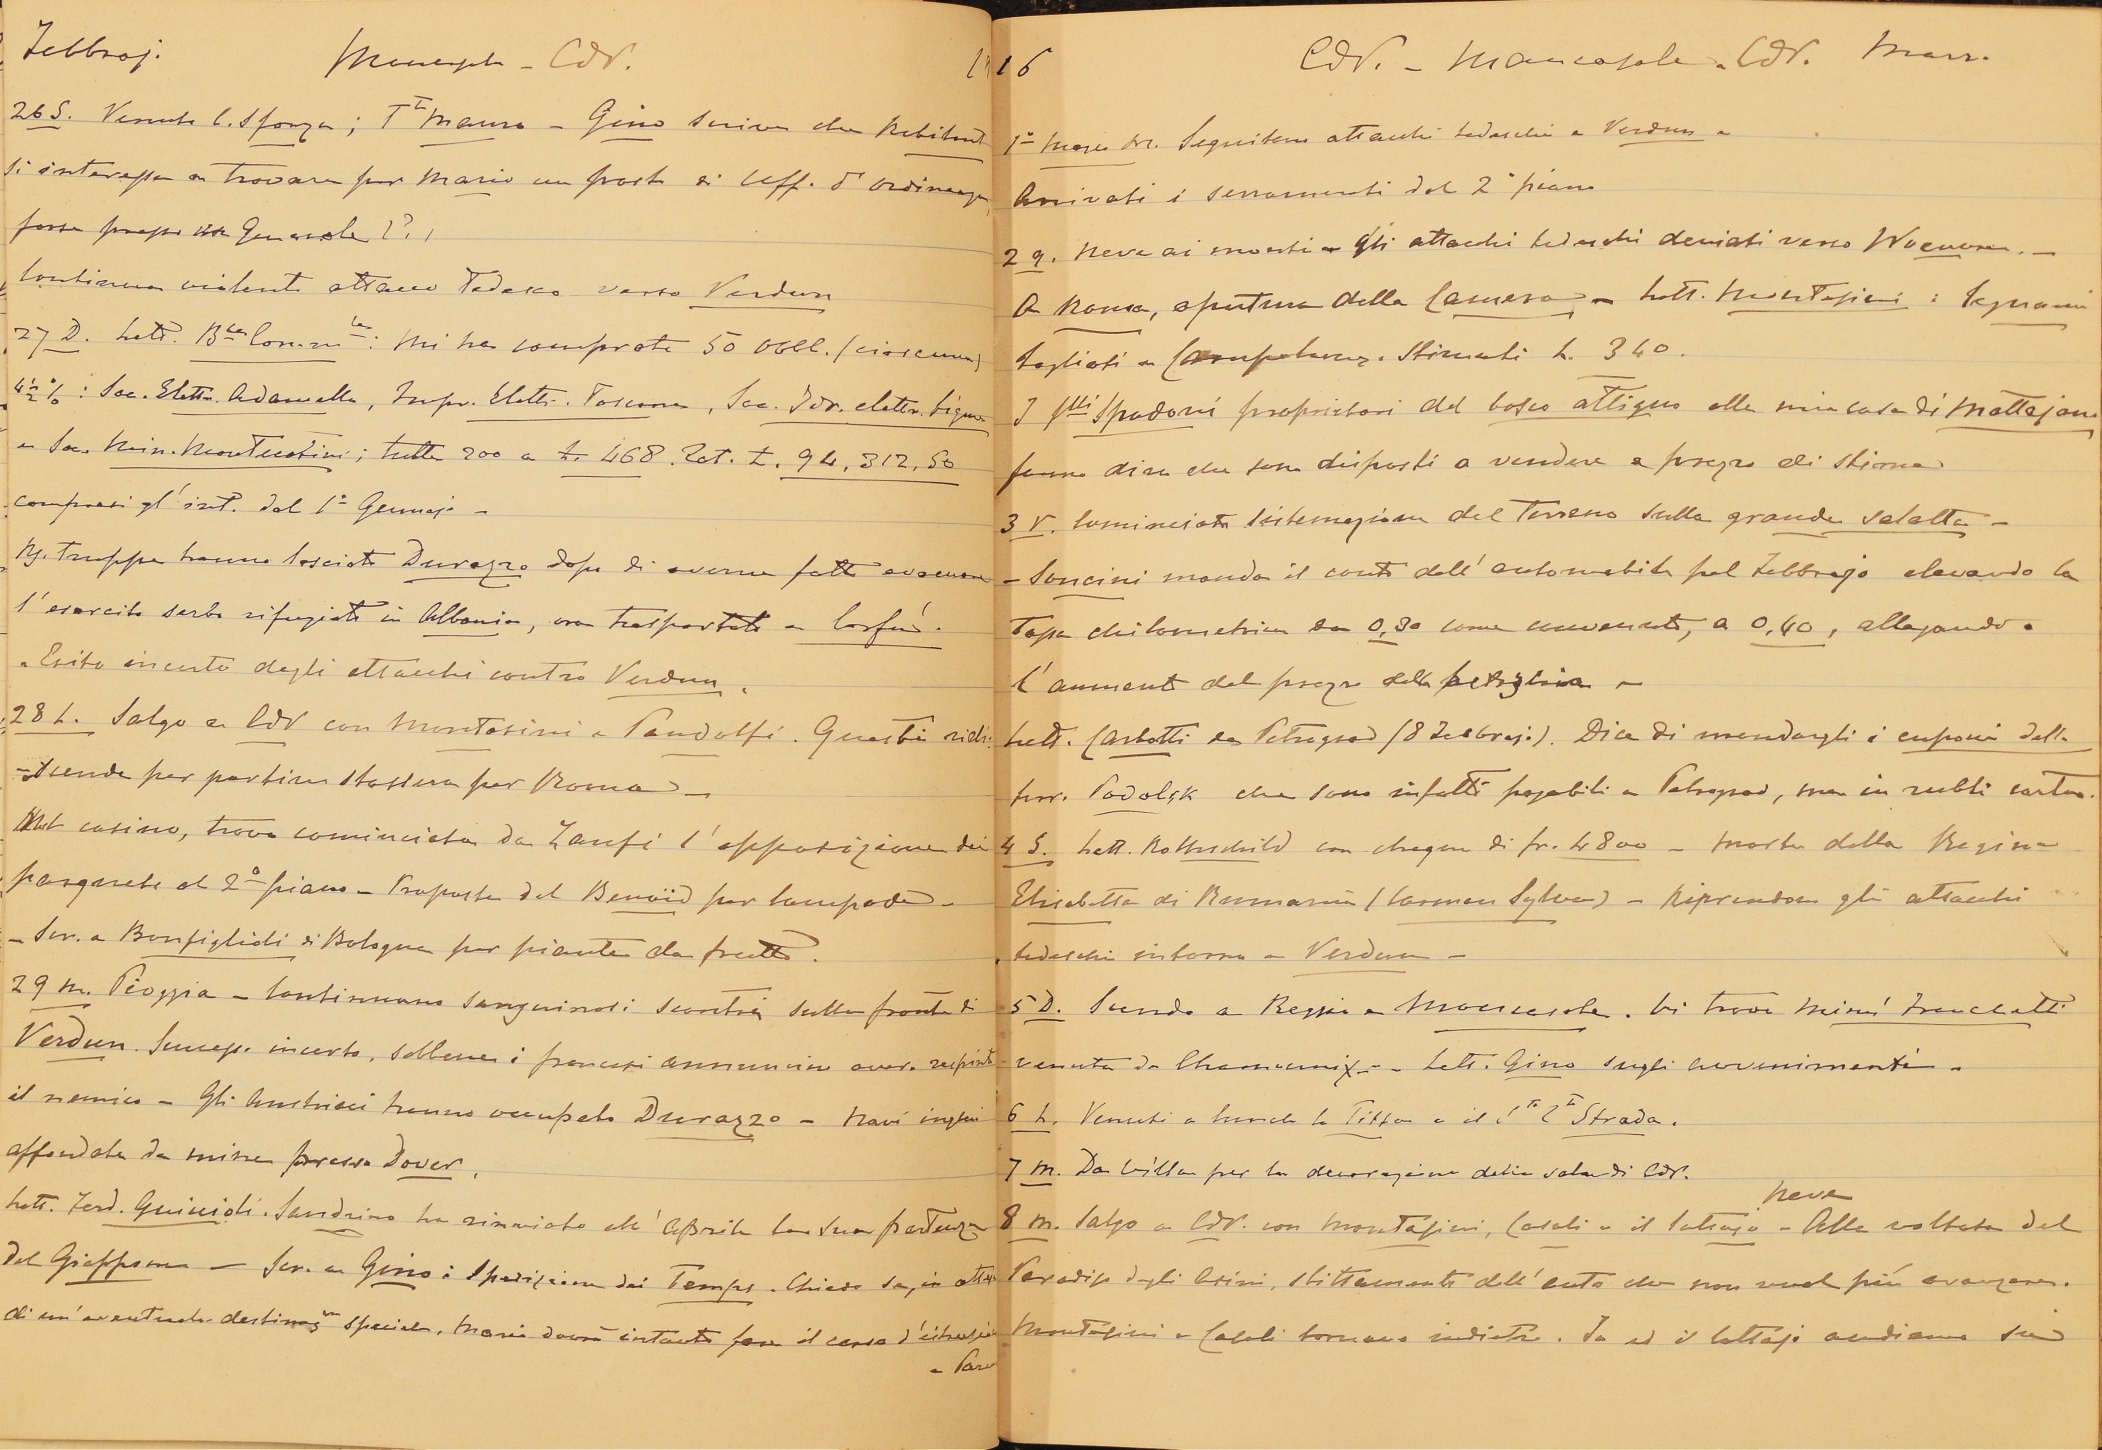 Febbraj. Mancasale - CdV. 1
26 S. Venuto C. Sforza; T.te Mauro - Gino scrive che
si interessa a trovare per Mario un posto di Uff. d'ordinanza
forse presso un Generale (?.)
Continua violento attacco Tedesco verso Verdun
27 D. Lett. B.ca Comm.le: Mi ha comprate 50 obbl. (ciascuna)
4 1/2 %: Soc. Elettr. Adamello, Impr. Elettr. Toscana, Soc. Idr. elettr. Ligure
e Soc. Min. Montecatini; tutte 200 a L. 468. Tot. L. 94,312,50
compresi gl'int. dal 1° Gennajo -
Rg. truppe hanno lasciato Durazzo dopo di averne fatto evacuare
l'esercito serbo rifugiato in Albania, ora trasportato a Corfù.
- Esito incerto degli attacchi contro Verdun.
28 L. Salgo a CdV con Montasini e Pandolfi. Questi ridi-
-scende per partire stassera per Roma -
Nel casino, trovo cominciata da Zanfi l'apposizione dei
parquets al 2° piano - Proposta del Benoid per lampade -
- Scr. a Bonfiglioli di Bologna per piante da frutto.
29 M. Pioggia - Continuano sanguinosi scontri sulla fronte di
Verdun. Success. incerto, sebbene i francesi annuncino aver respinto
il nemico - Gli Austriaci hanno occupato Durazzo - Navi inglesi
affondate da mine presso Dover.
Lett. Ferd. Guiccioli. Sandrino ha rinviato all'Aprile la sua partenza
dal Giappone - Scr. a Gino: Spedizione dei Temps. Chiedo se, in attesa
di un'eventuale destinaz.ne speciale, Mario dovrà intanto fare il corso d'istruzione
a
16 CdV. - Mancasale - CdV. Marz.
1° Marzo Mr. Seguitano attacchi tedeschi a Verdun -
Arrivati i serramenti del 2° piano
2 g. Neve ai monti - Gli attacchi tedeschi deviati verso Woevre. -
A Roma, apertura della Camera - Lett. Montasini: Legnami
tagliati a stimati L. 340.
I f.lli Spadoni proprietari del bosco attiguo alla mia casa di Mattajano
fanno dire che sono disposti a vendere a prezzo di stima
3 V. Cominciata sistemazione del Terreno sulla grande salatta -
- Soncini manda il conto dell'automobile pel Febbrajo elevando la
Tassa chilometrica da 0,30 come convenuto, a 0,40, allegando
l'aumento del prezzo della benzina -
Lett. Carlotti da Petrograd (8 Febbrajo). Dice di mandargli i cuponi delle
ferr. Podolsk che sono infatti pagabili a Petrograd, ma in rubli carta.
4 S. Lett. Rothschild con chèque di fr. 4800 - Morte della Regina
Elisabetta di Rumania (Carmen Sylva) - Riprendono gli attacchi
tedeschi intorno a Verdun -
5 D. Scendo a Reggio e Mancasale. Vi trovo Mimì Franchetti
venuta da Chamounix - - Lett. Gino sugli avvenimenti -
6 L. Venuti a lunch la Titta e il Strada.
7 M. Da Villa per la decorazione della sala di CdV.
neve
8 M. Salgo a CdV. con Montasini, Casali e il Lattajo - Alla voltata del
Paradiso degli Asini, slittamento dell'auto che non vuol più avanzare.
Montasini e Casali tornano indietro. Io ed il Lattajo andiamo su